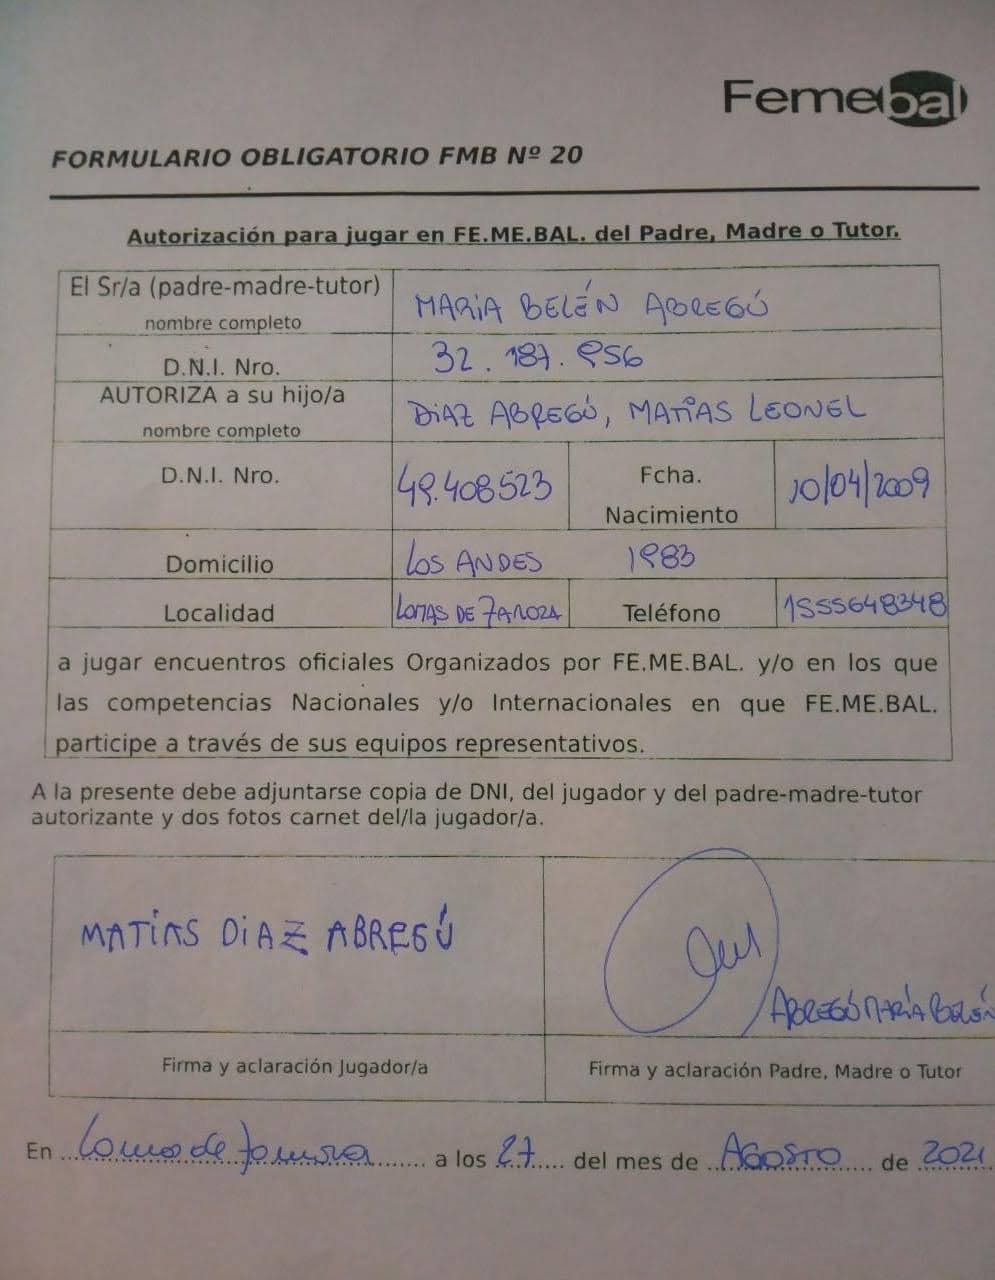 Femebal
FORMULARIO OBLIGATORIO FMB Nº 20
Autorización para jugar en FE.ME.BAL. del Padre, Madre o Tutor.
El Sr/a (padre-madre-tutor)
nombre completo
MARIA BELÉN ABREGÚ
D.N.I. Nro.
32.187.956
AUTORIZA a su hijo/a
nombre completo
DIAZ ABREGÚ, MATIAS LEONEL
D.N.I. Nro.
49.408523
Fcha.
Nacimiento
10/04/2009
Domicilio
LOS ANDES 1983
Localidad
LOMAS DE ZAMORA
Teléfono
1555648348
a jugar encuentros oficiales Organizados por FE.ME.BAL. y/o en los que
las competencias Nacionales y/o Internacionales en que FE.ME.BAL.
participe a través de sus equipos representativos.
A la presente debe adjuntarse copia de DNI, del jugador y del padre-madre-tutor
autorizante y dos fotos carnet del/la jugador/a.
MATÍAS DIAZ ABREGÚ
ABREGÚ MARÍA BELÉN
Firma y aclaración Jugador/a
Firma y aclaración Padre, Madre o Tutor
En Lomas de Zamora a los 27 del mes de AGOSTO de 2021